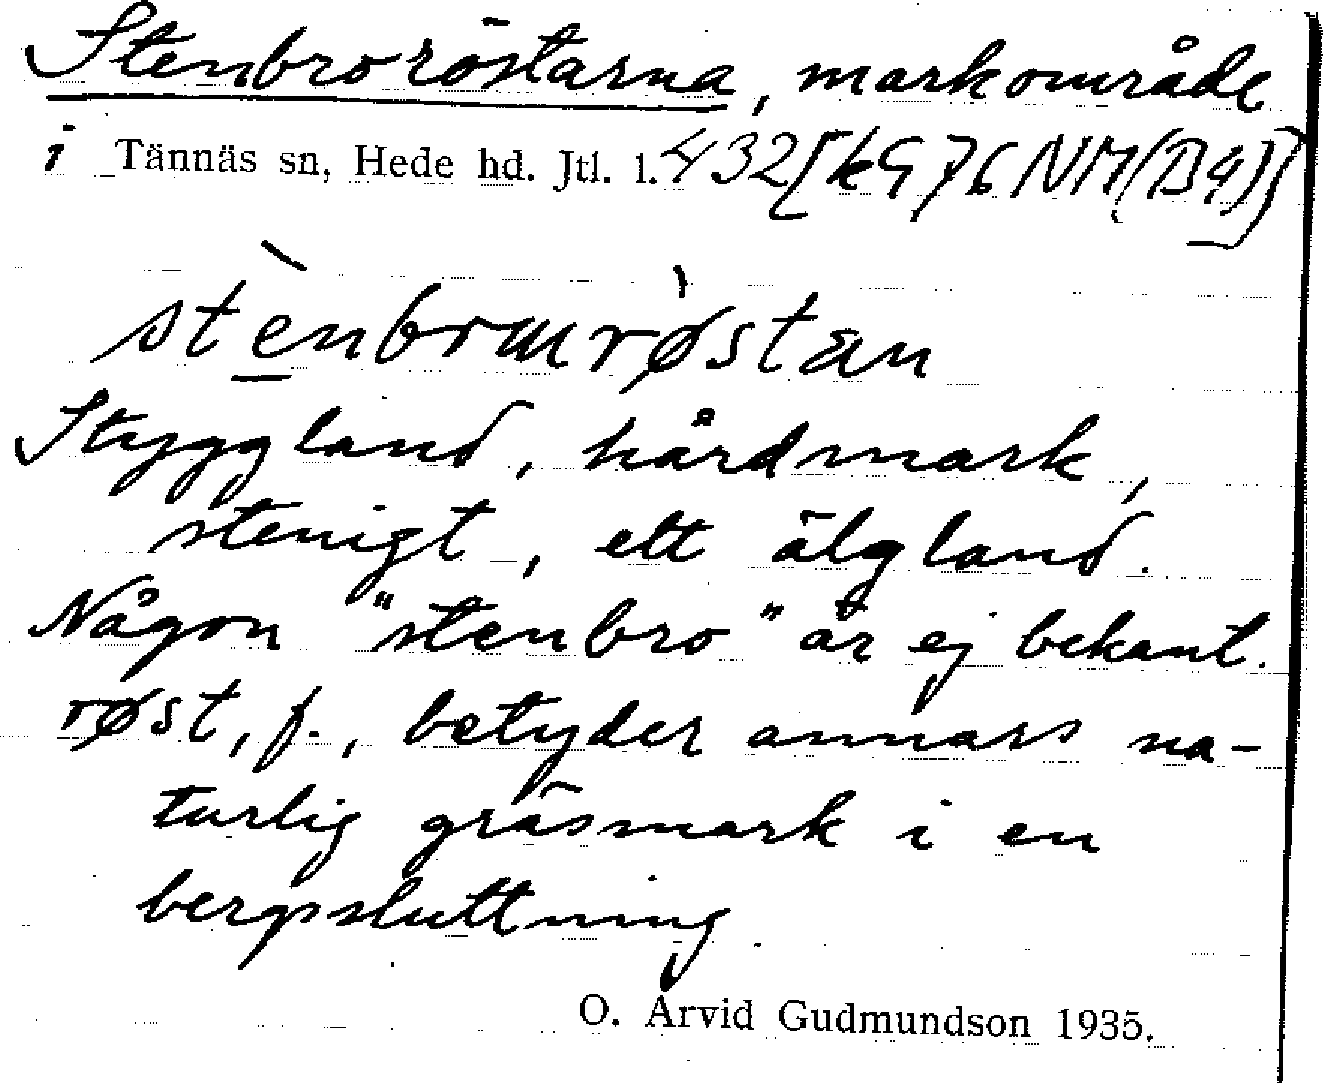 Stenbroröstarna, markområde
i Tännäs sn, Hede hd. Jtl. l. 432 [k976NM(B9)]
stènbrɯrø̀stan
Styggland, hårdmark,
stenigt, ett älgland.
Någon "stenbro" är ej bekant.
røst, f., betyder annars na-
turlig gräsmark i en
bergssluttning.
O. Arvid Gudmundson 1935.